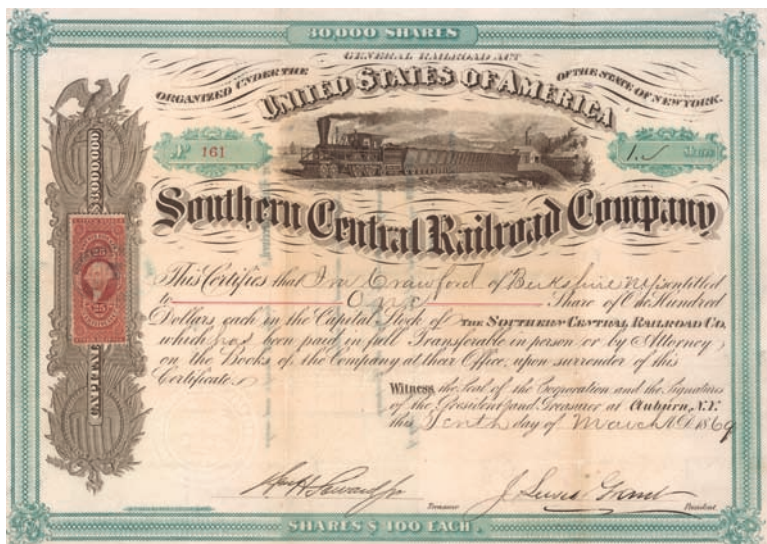 30,000 SHARES
GENERAL RAILROAD ACT
ORGANIZED UNDER THE
OF THE STATE OF NEW YORK.
UNITED STATES OF AMERICA
No 161
1 Share
CAPITAL $3,000,000
Southern Central Railroad Company
This Certifies that Ira Crawford of Berkshire NY is entitled
to One Share of One Hundred
Dollars each in the Capital Stock of THE SOUTHERN CENTRAL RAILROAD CO.
which has been paid in full Transferable in person or by Attorney
on the Books of the Company at their Office, upon surrender of this
Certificate.
Witness, the Seal of the Corporation and the Signatures
of the President and Treasurer at Auburn, N.Y.
this Tenth day of March AD 1869
25
Wm H Seward Jr
Treasurer
J Lewis Grant
President
SHARES $100 EACH.